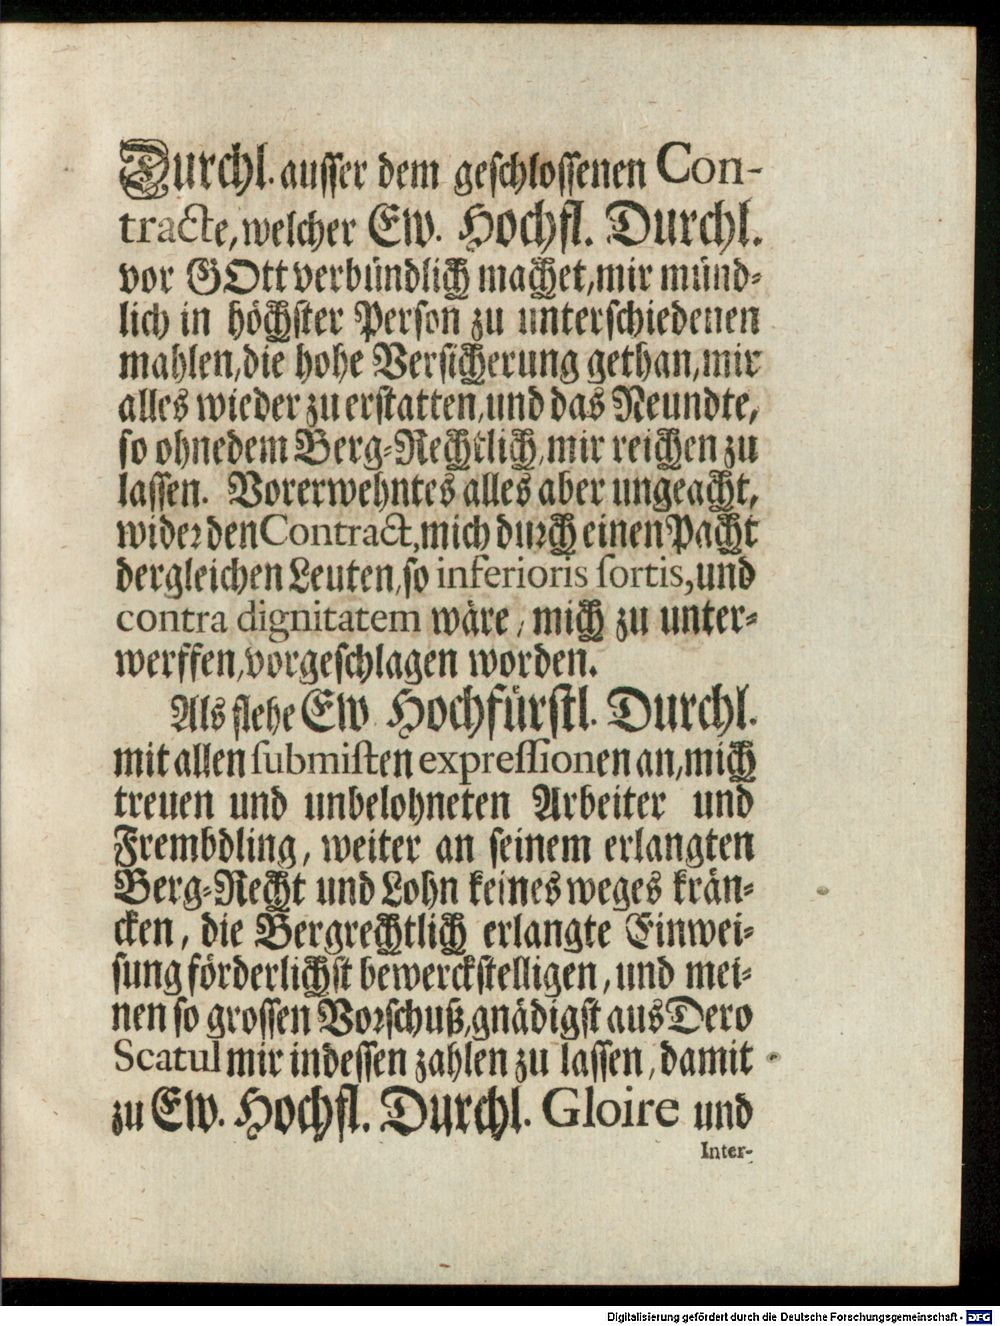 Durchl. ausser dem geschlossenen Con-
tracte, welcher Ew. Hochfl. Durchl.
vor GOtt verbündlich machet, mir münd-
lich in höchster Person zu unterschiedenen
mahlen, die hohe Versicherung gethan, mir
alles wieder zu erstatten, und das Neundte,
so ohnedem Berg-Rechtlich, mir reichen zu
lassen. Vorerwehntes alles aber ungeacht,
wider den Contract, mich durch einen Pacht
dergleichen Leuten, so inferioris sortis, und
contra dignitatem wäre, mich zu unter-
werffen, vorgeschlagen worden.
Als flehe Ew. Hochfürstl. Durchl.
mit allen submisten expressionen an, mich
treuen und unbelohneten Arbeiter und
Frembdling, weiter an seinem erlangten
Berg-Recht und Lohn keines weges krän-
cken, die Bergrechtlich erlangte Einwei-
sung förderlichst bewerckstelligen, und mei-
nen so grossen Vorschuß, gnädigst aus Dero
Scatul mir indessen zahlen zu lassen, damit
zu Ew. Hochfl. Durchl. Gloire und
Inter-
Digitalisierung gefördert durch die Deutsche Forschungsgemeinschaft - DFG